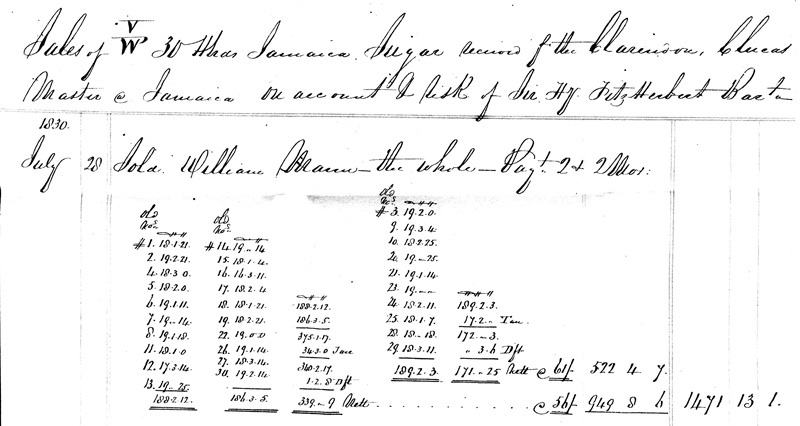 Sales of V/W 30 Hhds Jamaica Sugar received p the Clarendon, C Lucas
Master @ Jamaica on account & risk of Sir Hy. FitzHerbert Bart
1830.
July 28 Sold William Mann – the whole – Payt. 2 & 2 Mos:
Old Nos. Old Nos. Old Nos.
#3. 19.2.0.
9. 19.3.4.
#1. 18.1.21. #14. 19..14. 10. 18.2.25.
2. 19.2.21. 15. 18.1.4. 20. 19..25.
4. 18.3.0. 16. 16.3.11. 21. 19.1.14.
5. 18.2.0. 17. 18.2.4. 23. 19..–
6. 19.1.11. 18. 18.1.21. 188.2.12. 24. 18.2.11. 189.2.3.
7. 19..14. 19. 18.2.21. 186.3.5. 25. 18.1.7. 17.2.. Tare
8. 19.1.18. 22. 19.0.0 375.1.17. 28. 18..18. 172..3.
11. 18.1.0 26. 19.1.14. 34.3.0 Tare 29. 18.3.11. ..3.6 Dft
12. 17.3.14. 27. 18.3.14. 340.2.17. 189.2.3. 171..25 Nett @ 61/ 522 4 7.
13. 19..25. 30. 19.2.14. 1.2.8 Dft
188.2.12. 186.3.5. 339..9 Nett @ 56/ 949 8 6 1471 13 1.